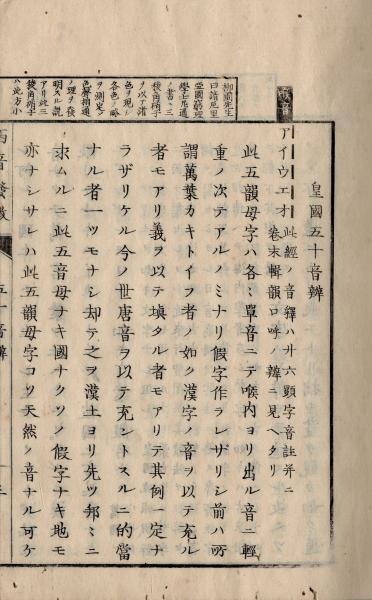 皇國五十音辨
アイウエオ
此經ノ音釋ハ廿六顆字音註并ニ
卷末輯韻口呼ノ辨ニ見ヘタリ
此五韻母字ハ各〻單音ニテ喉内ヨリ出ル音ニ輕
重ノ次テアルノミナリ假字作ラレザリシ前ハ所
謂萬葉カキトイフ者ノ如ク漢字ノ音ヲ以テ充ル
者モアリ義ヲ以テ塡タル者モアリテ其例一定ナ
ラザリケル今ノ世唐音ヲ以テ充ントスルニ的當
ナル者一ツモナシ却テ之ヲ漢土ヨリ先ツ邦ミニ
求ムルニ此五音母ナキ國ナクツノ假字ナキ地モ
亦ナシサレハ此五韻母字コソ天然ノ音ナル可ケ
柳圃先生
曰諳厄里
亞國窮理
學士 通
ノ書ニ三
稜角硝子
ヲ以テ諸
色ヲ現シ
各色ノ略
ヲ測定
色聲相通
ノ理ヲ發
明スル説
アリ此三
稜角硝子
ハ此方小
西音發微
五十音辨